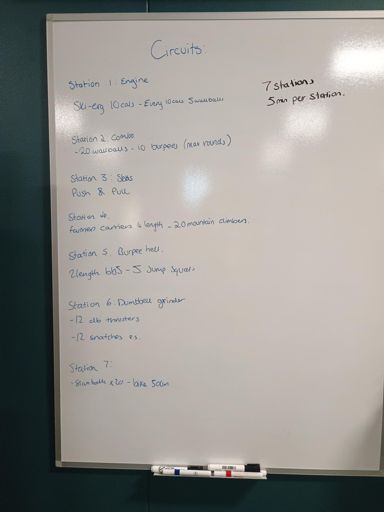 Circuits:
7 stations
5 min per station.
Station 1: Engine
Ski-erg 10cals - Every 10cals 5 wallballs
Station 2: Combo
- 20 wallballs - 10 burpees (max rounds)
Station 3: Sleds
Push & Pull
Station 4:
farmers carriers 4 length - 20 mountain climbers.
Station 5: Burpee hell.
2 length bbJ - 5 Jump Squats
Station 6: Dumbbell grinder
- 12 db thrusters
- 12 snatches es.
Station 7:
- Slamballs x20 - bike 500m